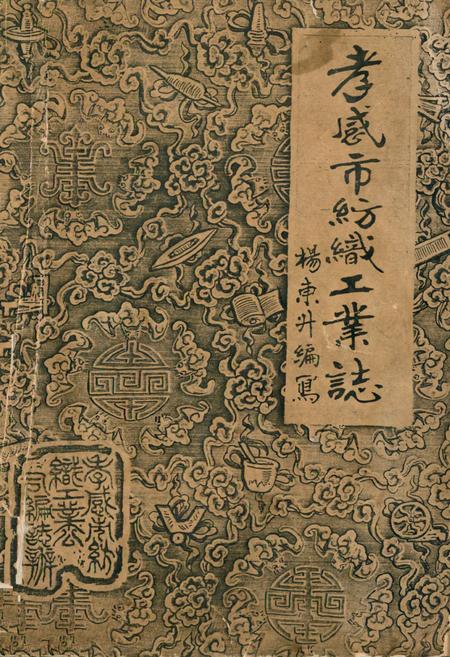 孝感市紡織工業誌
楊東升編寫
孝感市紡
織工業
司編誌辦